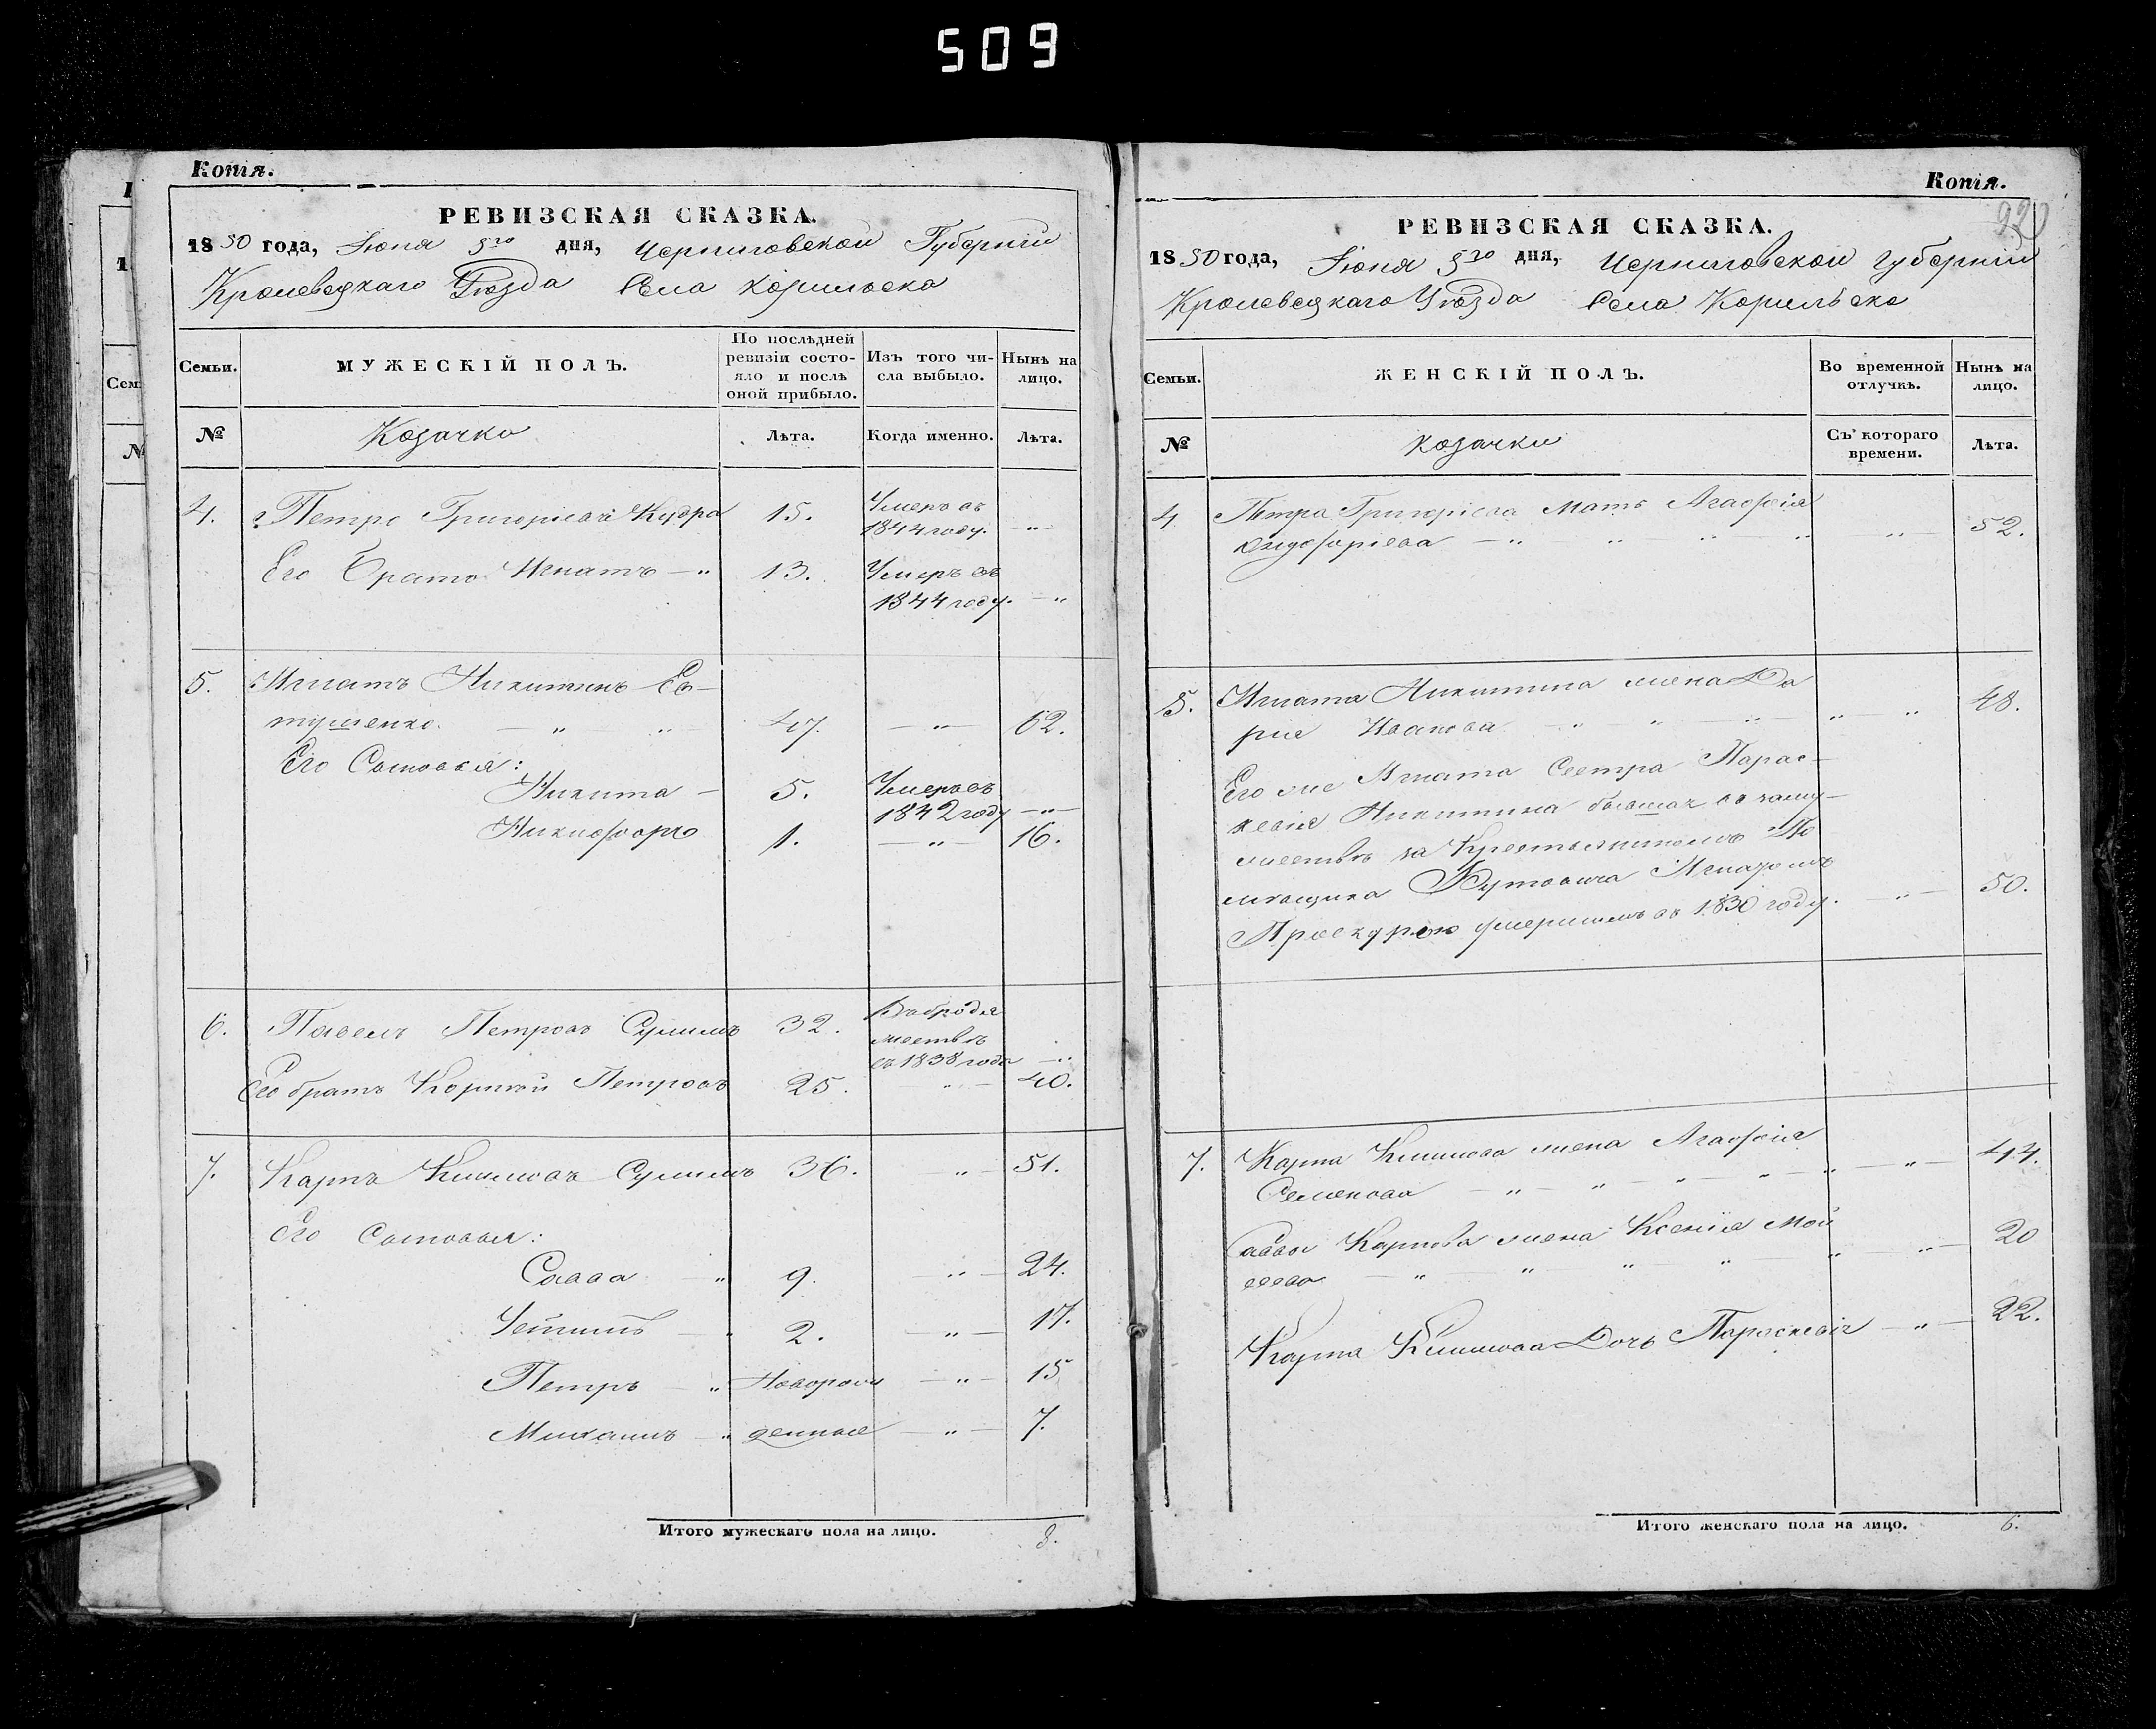 509
Копія.
РЕВИЗСКАЯ СКАЗКА.
1850 года, Іюня 5го дня, Черниговской Губерніи
Кролевецкаго Уѣзда Села
Семьи.
МУЖЕСКІЙ ПОЛЪ.
По послѣдней ревизіи состо-
яло и послѣ оной прибыло.
Изъ того чи-
сла выбыло.
Нынѣ на
лицо.
№
Козачки
Лѣта.
Когда именно.
Лѣта.
4. Петро Григорьевъ Кудра 15. Умеръ въ
1844 году. — " —
Его Братъ Игнатъ — " 13. Умеръ въ
1844 году. — "
5. Игнатъ Никитинъ Ев-
тушенко. — " " 47. — " — 62.
Его Сыновья:
Никита — 5. Умеръ въ
1842 году — " —
Никифоръ 1. — " — 16.
6. Павелъ Петровъ Сулимъ 32. Въ бродя
жествѣ
съ 1838 года — "
Его братъ Корнѣй Петровъ 25. " — 40.
7. Карпъ Климовъ Сулимъ 36. " — 51.
Его Сыновья:
Савва " 9. — " — 24.
2. — " — 17.
Петръ — " Новорож — " — 15
Михаилъ — " денные — " — 7.
Итого мужескаго пола на лицо. 8.
Копія.
РЕВИЗСКАЯ СКАЗКА.
1850 года, Іюня 5го дня, Черниговской Губерніи
Кролевецкаго Уѣзда Села
Семьи.
ЖЕНСКІЙ ПОЛЪ.
Во временной
отлучкѣ.
Нынѣ на
лицо.
№
козачки
Съ котораго
времени.
Лѣта.
4 Петра Григорьева Мать Агафія
— " " " " " — 52.
5. Игната Никитина жена Да
рія Иванова — " — " — " — " " 48.
Его же Игната Сестра Парас-
кевія Никитина бывшая въ заму-
жествѣ за Крестьяниномъ По
мѣщика Игнатомъ
умершимъ въ 1830 году. — " — 50.
7. Карпа Климова жена Агафія
Семенова — " — " — " — " — " — " — 44.
Саввы Карпова жена Ксенія Мой
сеева — " " " " " " — 20
Карпа Климова Дочь Параскевія — " — 22.
Итого женскаго пола на лицо. 6.